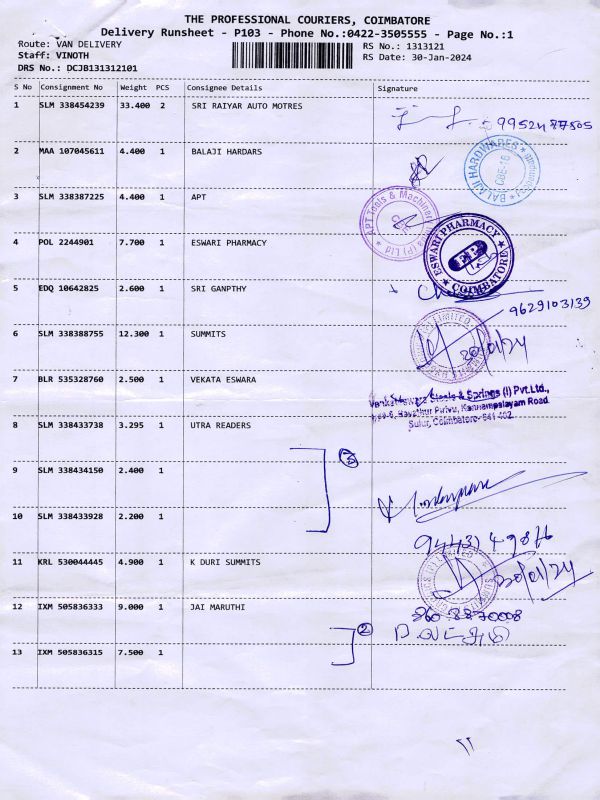 THE PROFESSIONAL COURIERS, COIMBATORE
Delivery Runsheet - P103 - Phone No.:0422-3505555 - Page No.:1
Route: VAN DELIVERY
RS No.: 1313121
Staff: VINOTH
RS Date: 30-Jan-2024
DRS No.: DCJB131312101
S No Consignment No Weight PCS Consignee Details Signature
1 SLM 338454239 33.400 2 SRI RAIYAR AUTO MOTRES
2 MAA 107045611 4.400 1 BALAJI HARDARS
BALAJI HARDWARES
CBE-16
3 SLM 338387225 4.400 1 APT
APT Tools & Machinery (P) Ltd
4 POL 2244901 7.700 1 ESWARI PHARMACY
ESWARI PHARMACY
EP
COIMBATORE
5 EDQ 10642825 2.600 1 SRI GANPTHY
9629103139
6 SLM 338388755 12.300 1 SUMMITS
LIMITED
30/01/24
7 BLR 535328760 2.500 1 VEKATA ESWARA
Steels & Springs (I) Pvt.Ltd.,
Road
Sulur, Coimbatore- 641 402.
8 SLM 338433738 3.295 1 UTRA READERS
9 SLM 338434150 2.400 1
10 SLM 338433928 2.200 1
11 KRL 530044445 4.900 1 K DURI SUMMITS
LIMITED
30/01/24
12 IXM 505836333 9.000 1 JAI MARUTHI
2
13 IXM 505836315 7.500 1